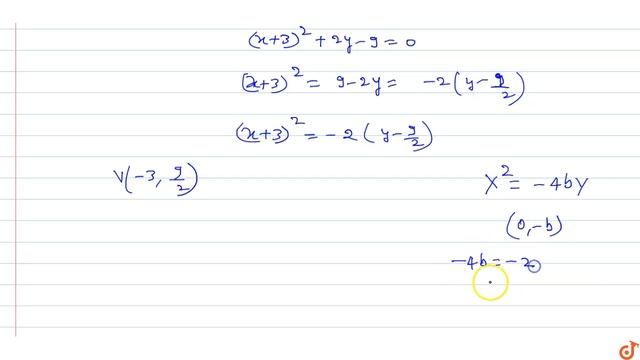 (x+3)² + 2y - 9 = 0
(x+3)² = 9 - 2y = -2(y - 9/2)
(x+3)² = -2(y - 9/2)
V(-3, 9/2)
X² = -4bY
(0, -b)
-4b = -2